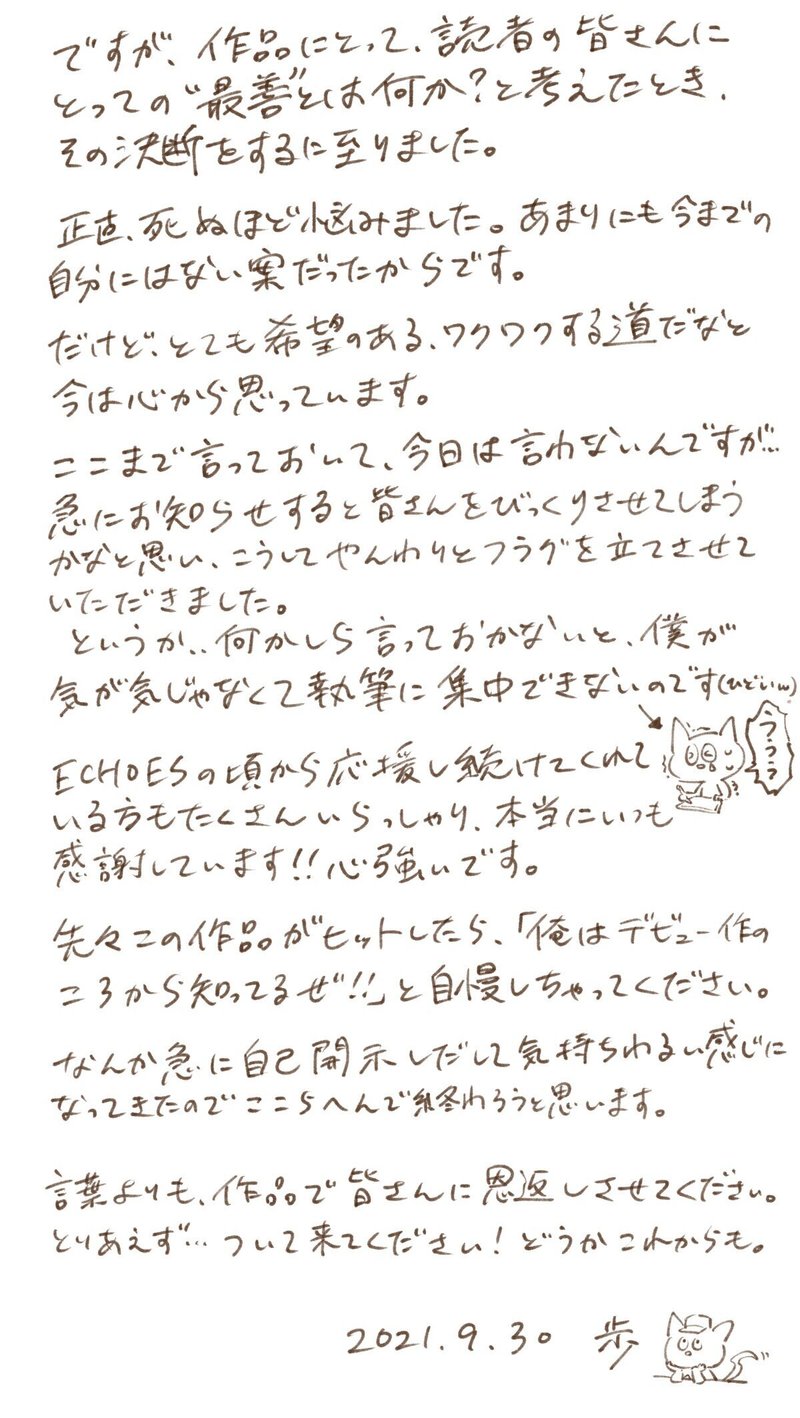 ですが、作品にとって、読者の皆さんに
とっての“最善”とは何か?と考えたとき、
その決断をするに至りました。
正直、死ぬほど悩みました。あまりにも今までの
自分にはない案だったからです。
だけど、とても希望のある、ワクワクする道だなと
今は心から思っています。
ここまで言っておいて、今日は言わないんですが…
急にお知らせすると皆さんをびっくりさせてしまう
かなと思い、こうしてやんわりとフラグを立てさせて
いただきました。
というか..何かしら言っておかないと、僕が
気が気じゃなくて執筆に集中できないのです(ひどいw)
ううう
ECHOESの頃から応援し続けてくれて
いる方もたくさんいらっしゃり、本当にいつも
感謝しています!!心強いです。
先々この作品がヒットしたら、「俺はデビュー作の
ころから知ってるぜ!!」と自慢しちゃってください。
なんか急に自己開示しだして気持ちわるい感じに
なってきたのでここらへんで終わろうと思います。
言葉よりも、作品で皆さんに恩返しさせてください。
とりあえず…ついて来てください!どうかこれからも。
2021.9.30 歩